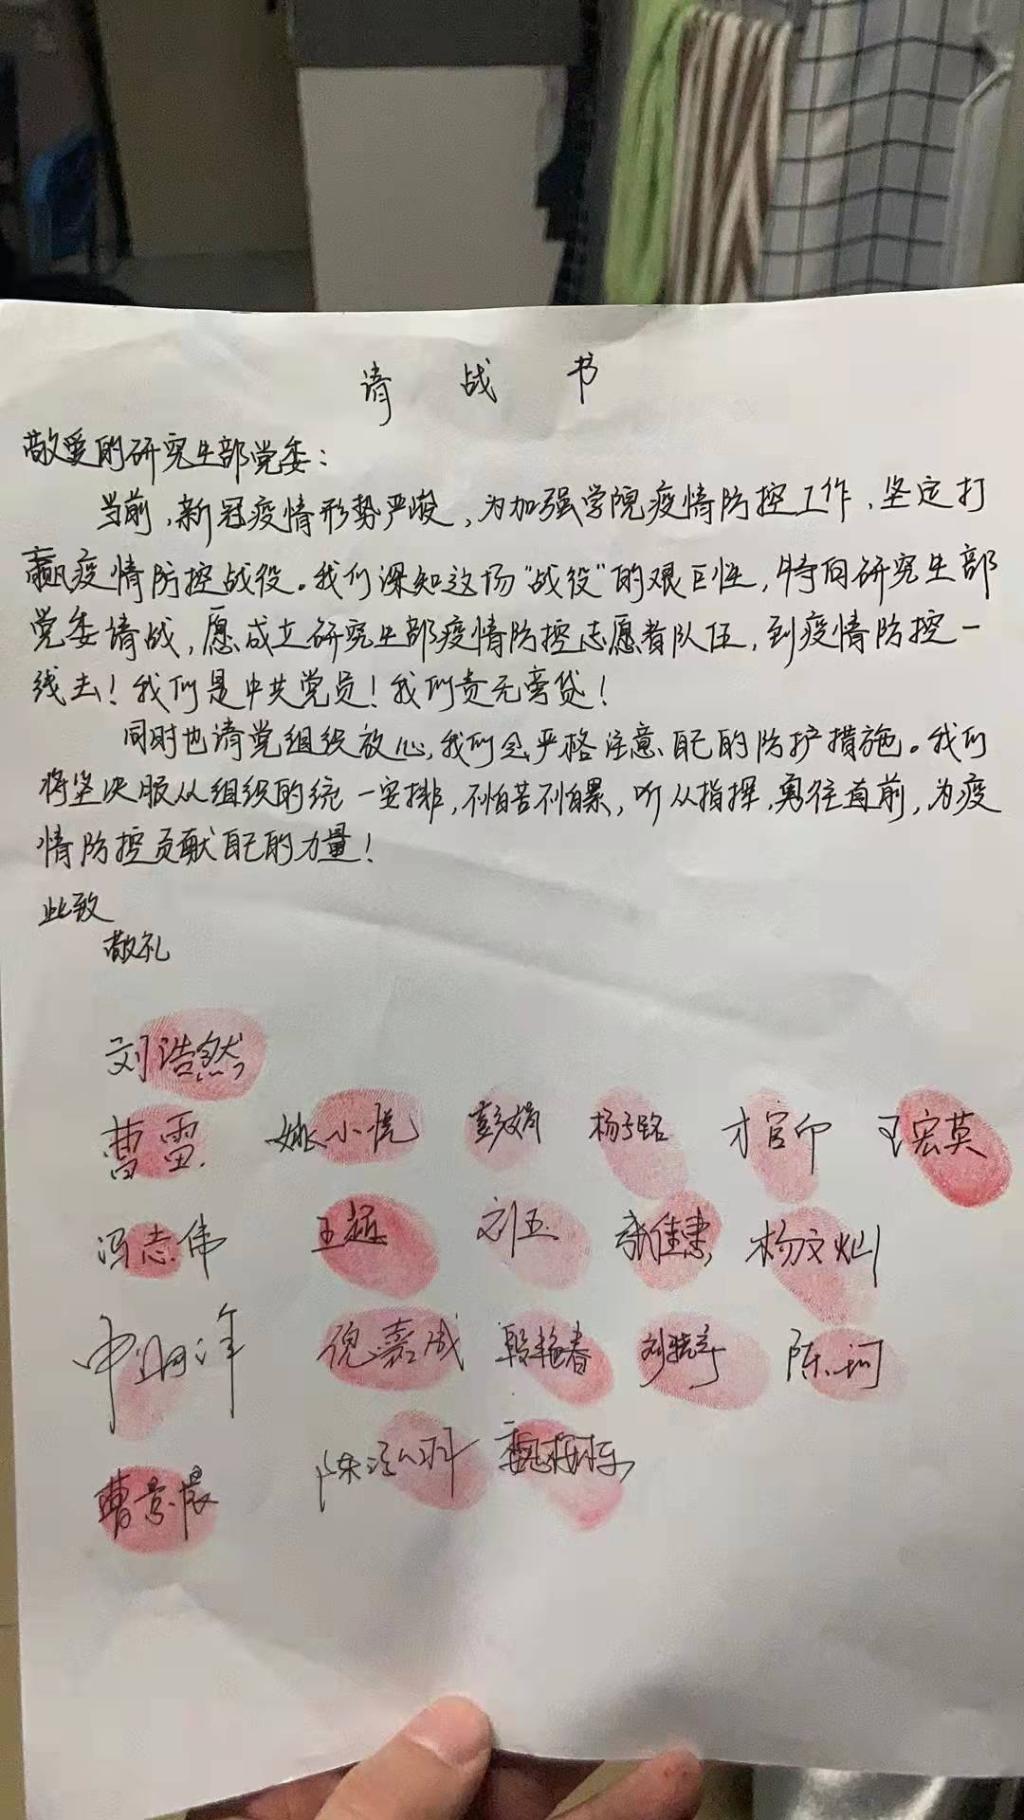 请战书
敬爱的研究生部党委：
当前，新冠疫情形势严峻，为加强学院疫情防控工作，坚定打
赢疫情防控战役。我们深知这场“战役”的艰巨性，特向研究生部
党委请战，愿成立研究生部疫情防控志愿者队伍，到疫情防控一
线去！我们是中共党员！我们责无旁贷！
同时也请党组织放心，我们会严格注意自己的防护措施。我们
将坚决服从组织的统一安排，不怕苦不怕累，听从指挥，勇往直前，为疫
情防控贡献自己的力量！
此致
敬礼
刘浩然
曹雷 姚小悦 彭娟 杨子铭 才官印 王宏英
冯志伟 王超 刘五 张佳慧 杨文灿
倪嘉成 殷艳春 刘晓宇 陈珂
曹景晨